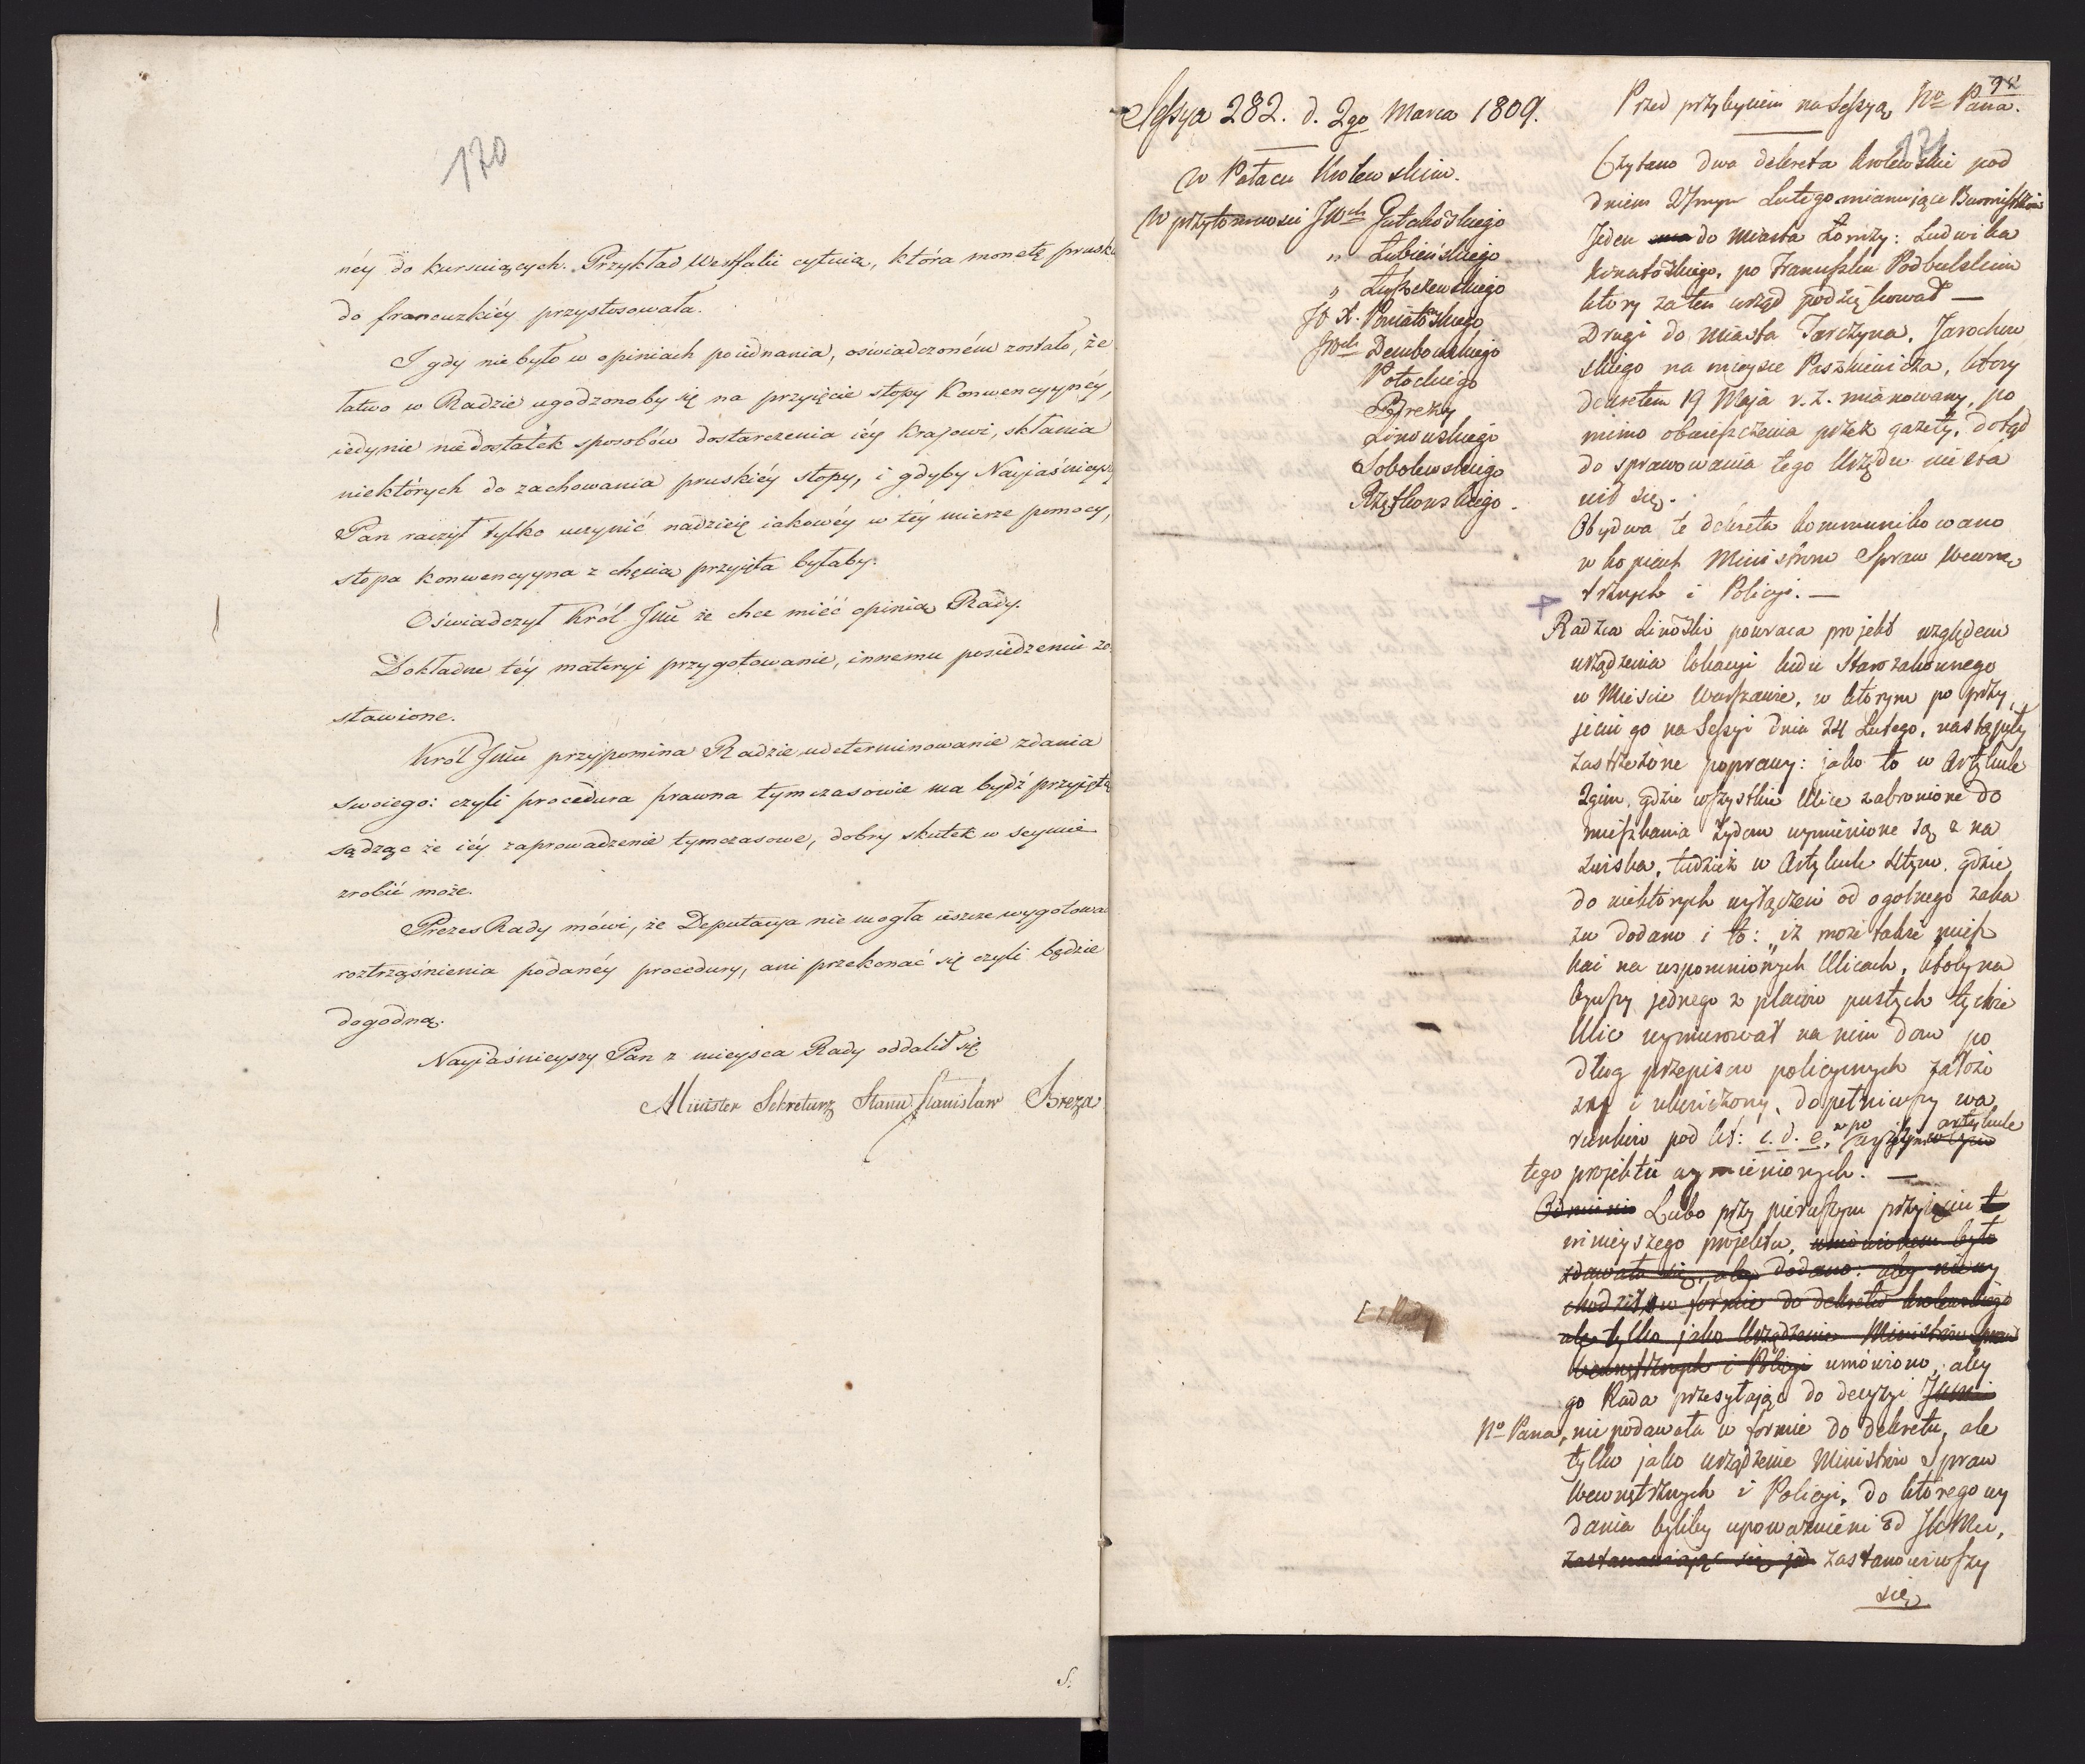 170
néy do kursuiących. Przykład Westfalii cytuią, która monetę prusk
do francuzkiéy przystosowała.
I gdy nie było w opiniach poiednania, oświadczoném zostało, że
łatwo w Radzie ugodzonoby się na przyięcie stopy Konwencyynéy,
iedynie niedostatek sposobów dostarczenia iéy Krajowi, skłania
niektórych do zachowania pruskiéy stopy, i gdyby Nayiaśnieysz
Pan raczył tylko uczynić nadzieię iakowéy w téy mierze pomocy,
stopa konwencyyna z chęcią przyięta byłaby.
Oświadczył Król Jmć że chce mieć opinią Rady.
Dokładne téy materyi przygotowanie, innemu posiedzeniu zo
stawione.
Król Jmć przypomina Radzie udeterminowanie zdania
swoiego: czyli procedura prawna tymczasowie ma bydź przyiętą
sądząc że iéy zaprowadzenie tymczasowe, dobry skutek w seymie
zrobić może.
Prezes Rady mówi, że Deputacya nie mogła ieszcze wygotowa
roztrząśnienia podanéy procedury, ani przekonać się czyli będzie
dogodną.
Nayiaśnieyszy Pan z mieysca Rady oddalił się
Minister Sekretarz Stanu Stanisław Breza
S.
98
Sessya 282. d. 2go Marca 1809.
w Pałacu Krolewskim.
W przytomnosci JWch Gutakowskiego
" Łubieńskiego
" Łuszczewskiego
JO X. Poniatowskiego
JWch Dembowskiego
Potockiego
Brezy
Linowskiego
Sobolewskiego
Rzętkowskiego.
Przed przybyciem na Sessyą No Pana.
171
Czytano dwa dekreta krolewskie pod
dniem 27mym Lutego mianujące Burmistrzów
Jeden do Miasta Łomży: Ludwika
po Franciszku Podbielskim
ktory za ten urząd podziękował —
Drugi do Miasta Tarczyna, Jarochow
skiego na mieysce Paszkiewicza, ktory
dekretem 19 Maja r. z. mianowany, po
mimo obwieszczenia przez gazety, dotąd
do sprawowania tego Urzędu nie sta
wił się.
Obydwa te dekreta kommunikowano
w kopiach Ministrom Spraw Wewnę
trznych i Policyi. —
Radzca Linowski powraca projekt względem
urządzenia lokacyi ludu Starozakonnego
w Mieście Warszawie, w którym po przy
jęciu go na Sessyi dnia 24 Lutego, nastąpiły
zastrzeżone poprawy: jako to w Artykule
2gim, gdzie wszystkie Ulice zabronione do
mieszkania Żydom wymienione są z na
zwiska, tudzież w Artykule 4tym, gdzie
do niektórych wyłączeń od ogolnego zaka
zu dodano i to: "iż może także miesz
kać na wspomnionych Ulicach, ktoby na
bywszy jednego z placów pustych tychże
Ulic wymurował na nim dom po
dług przepisow policyinych założo
ny i ukończony, dopełniwszy wa
runkow pod lit: c. d. e. w po artykule
tego projektu wymienionych. —
Odmienio Lubo przy pierwszym przyjęciu t
ninieyszego projektu, umówionem było
zdawało się, aby dodano: aby nie wy
chodził w formie do dekretu krolewskiego
ale tylko jako Urządzenie Ministrów Spraw
Wewnętrznych i Policyi umówiono, aby
go Rada przesyłając do decyzyi
No Pana, nie podawała w formie do dekretu, ale
tylko jako urządzenie Ministrów Spraw
Wewnętrznych i Policyi, do którego wy
dania byliby upoważnieni od JKMci,
zastanawiając się zastanowiwszy
się